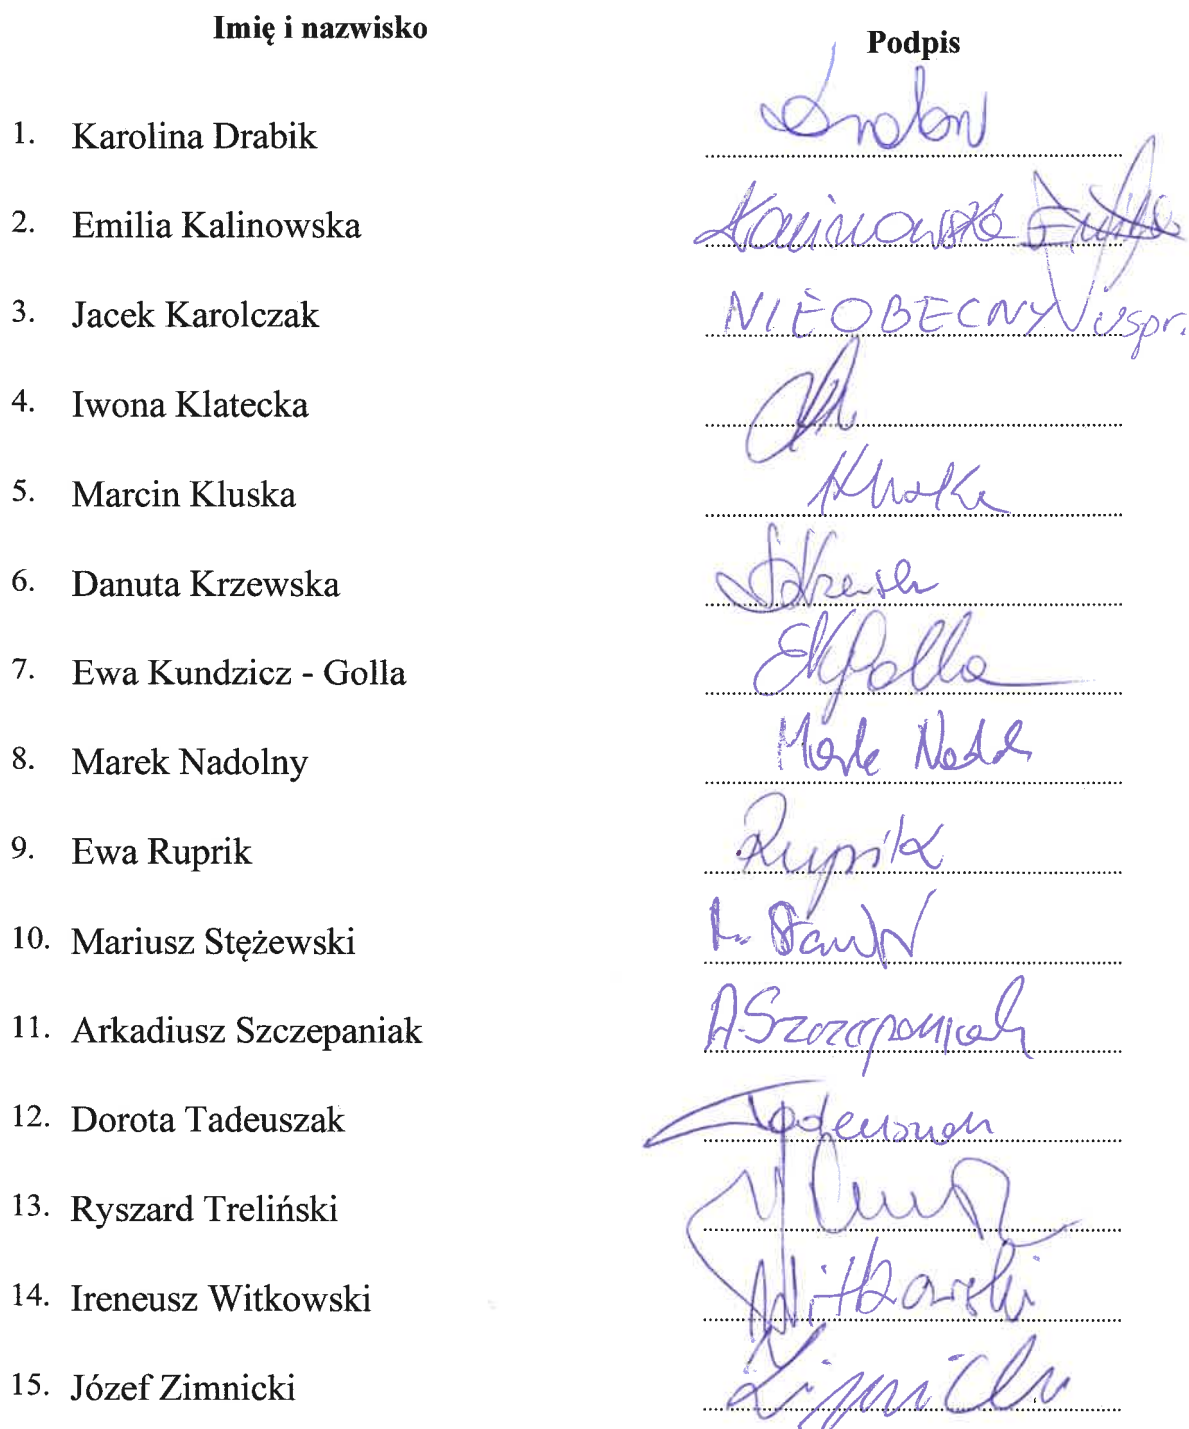 Imię i nazwisko Podpis
1. Karolina Drabik
2. Emilia Kalinowska Kalinowska Emilia
3. Jacek Karolczak NIEOBECNY uspr.
4. Iwona Klatecka
5. Marcin Kluska Kluska
6. Danuta Krzewska DKrzewska
7. Ewa Kundzicz - Golla EKGolla
8. Marek Nadolny Marek
9. Ewa Ruprik Ruprik
10. Mariusz Stężewski
11. Arkadiusz Szczepaniak A.Szczepaniak
12. Dorota Tadeuszak Tadeuszak
13. Ryszard Treliński
14. Ireneusz Witkowski Witkowski
15. Józef Zimnicki Zimnicki